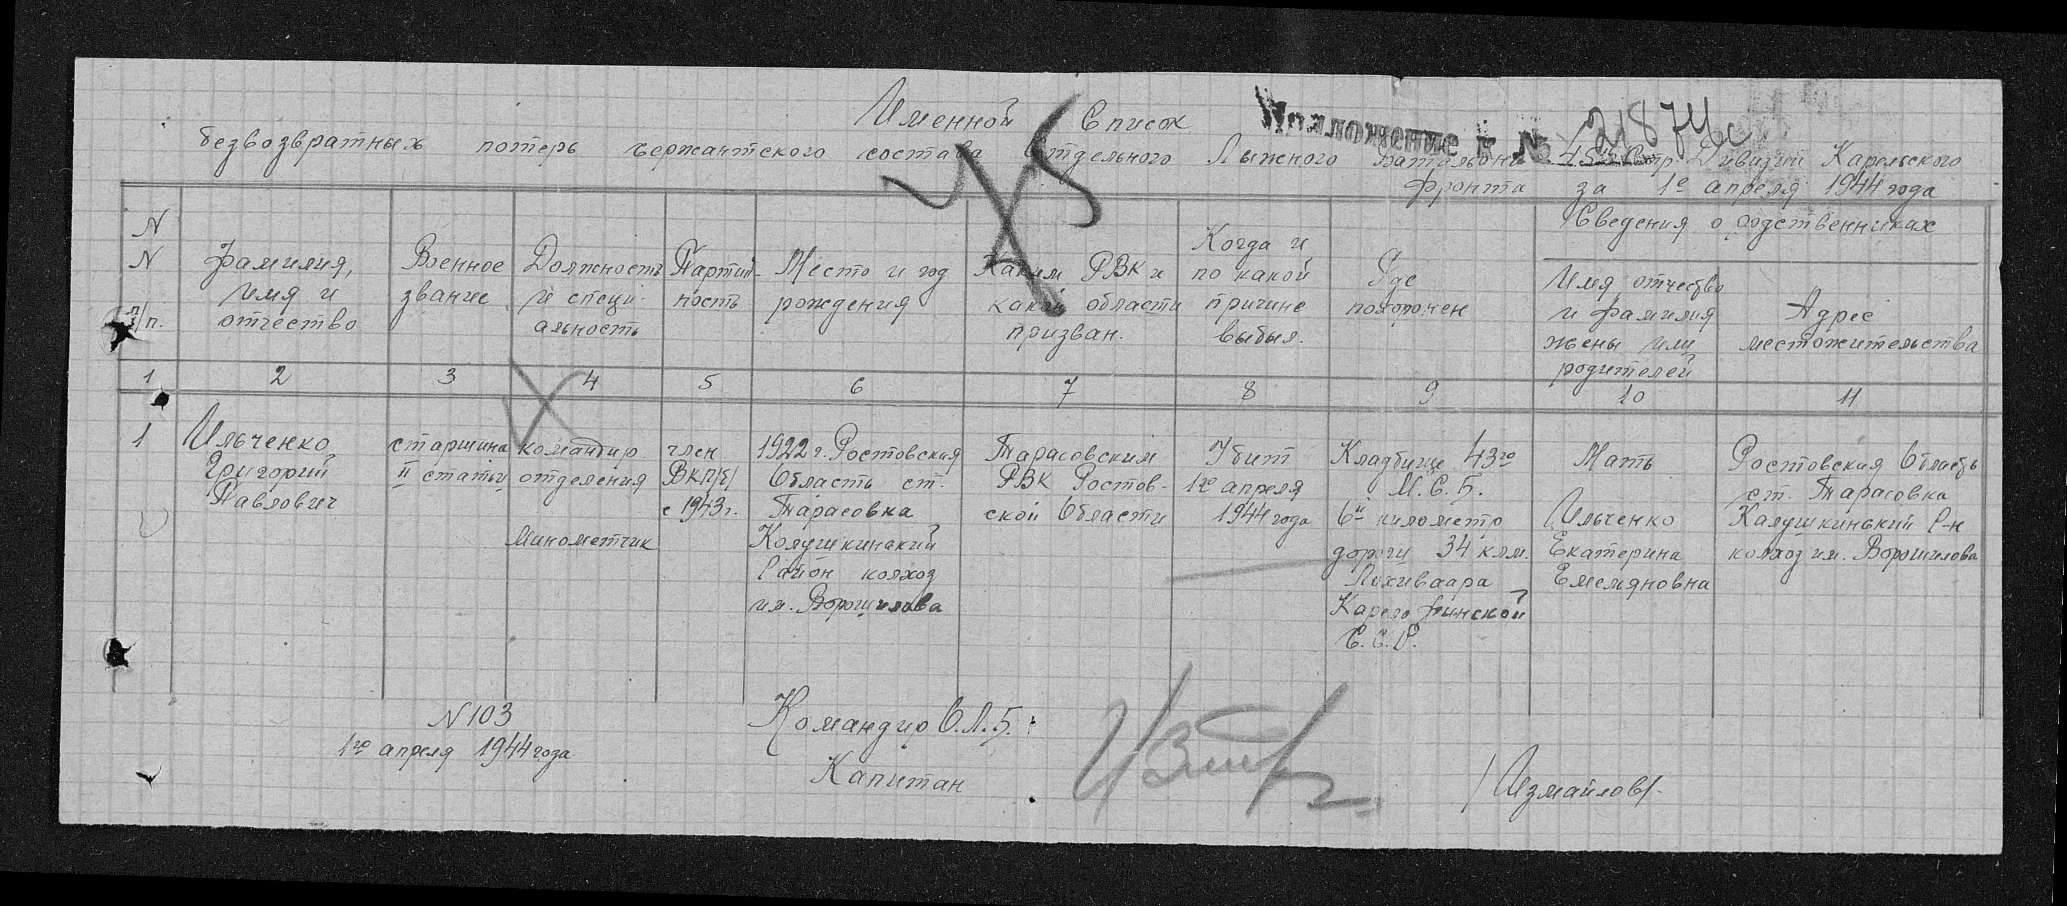 Именной Список
Приложение к № 21874с
безвозвратных потерь сержантского состава Отдельного Лыжного Батальона 45й Стр. Дивизии Карельского
фронта за 1е апреля 1944 года
45
N N п/п.
Фамилия, имя и отчество
Военное звание
Должность и специальность
Партийность
Место и год рождения
Каким РВК и какой области призван.
Когда и по какой причине выбыл.
Где похоронен
Сведения о родственниках
Имя отчество и фамилия жены или родителей
Адрес местожительства
1 2 3 4 5 6 7 8 9 10 11
1
Ильченко
Григорий
Павлович
старшина
II статьи
командир
отделения
Минометчик
член
ВКП/б/
с 1943 г.
1922 г. Ростовская
Область ст.
Тарасовка
Колушкинский
Район колхоз
им. Ворошилова
Тарасовским
РВК Ростов-
ской Области
Убит
1го апреля
1944 года
Кладбище 43го
М.С.Б.
6й километр
дороги 34 клм.
Лохиваара
Карело финской
С.С.Р.
Мать
Ильченко
Екатерина
Емельяновна
Ростовская Область
ст. Тарасовка
Калушкинский Р-н
колхоз им. Ворошилова
N 103
1го апреля 1944 года
Командир О.Л.Б.:
Капитан
/Измайлов/.